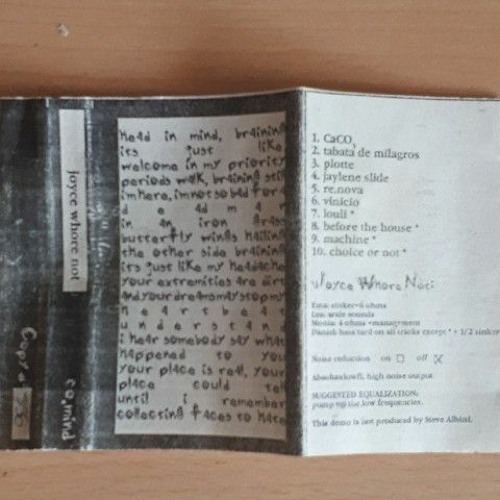 joyce whore not
co,mind
he4d in mind, br4ining
its just like
welcome in my priority
periods w4lk, br4ining still
im here, im not so bad for 4
d e 4d m 4 n
in 4n iron
butterfly wings
the other side br4ining
its just like my he4d4che
your extremities are dirt
4nd your dre4ms m4y stop my
h e 4 r t b e 4 t
u n d e r s t 4 n
i he4r somebody s4y wh4t
h4ppened to you
your pl4ce is re4l, your
pl4ce could tell
until i remember
collecting f4ces to h4te
1. CaCO3
2. tabata de milagros
3. plotte
4. jaylene slide
5. re.nova
6. vinicio
7. louli *
8. before the house *
9. machine *
10. choice or not *
Joyce Whore Not:
Ema: sinker+4 ohms
Leo: wale sounds
Monia: 4 ohms +management
Danish bass tard on all tracks except * + 1/2 sinker
Noise reduction on off
high noise output
SUGGESTED EQUALIZATION:
pump up the low frequencies.
This demo is not produced by Steve Albini.